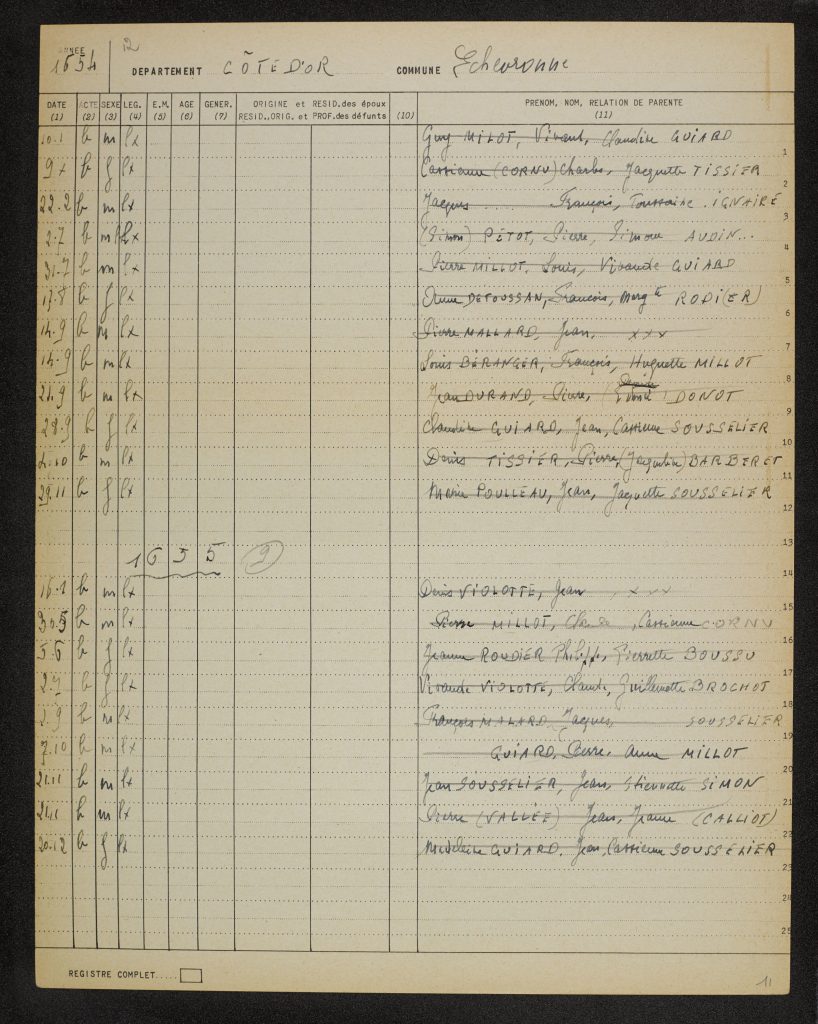 ANNEE 12
1654 DEPARTEMENT CÔTE D'OR COMMUNE Echevronne
DATE ACTE SEXE LEG. E.M. AGE GENER. ORIGINE et RESID.des époux PRENOM, NOM, RELATION DE PARENTE
(1) (2) (3) (4) (5) (6) (7) RESID.,ORIG. et PROF.des défunts (10) (11)
10.1 b m lx Guy MILOT, Vivant, Claudine GUIARD 1
9x b f lx Cassienne (CORNU) Charles, Jacquette TISSIER 2
22.2 b m lx Jacques ... François, Toussaine .IGNAIRÉ 3
2.7 b m lx (Simon) PÉTOT, Pierre, Simone AUDIN... 4
31.7 b m lx Pierre MILLOT, Louis, Vivande GUIARD 5
17.8 b f lx Anne DETOUSSAN, François, Margte RODI(ER) 6
14.9 b m lx Pierre MALLARD, Jean, xxx 7
14.9 b m lx Louis BÉRANGER, François, Huguette MILLOT 8
21.9 b m lx Jean DURAND, Pierre, DONOT 9
28.9 b f lx Claudine GUIARD, Jean, Cassienne SOUSSELIER 10
b m lx Denis TISSIER, Pierre, (Jacqueline) BARBERET 11
29.11 b f lx Marie POULLEAU, Jean, Jaquette SOUSSELIER 12
13
1655 (9) 14
16.1 b m lx Denis VIOLOTTE, Jean xxx 15
30.5 b m lx Pierre MILLOT, Claude, Cassienne CORNU 16
5.6 b f lx Jeanne ROUDIER Philippe, Pierrette BOUSSU 17
2.7 b f lx Vivande VIOLOTTE, Claude, Guillemette BROCHOT 18
2.9 b m lx François MALARD, Jacques, SOUSSELIER 19
7.10 b m lx GUIARD, Pierre, Anne MILLOT 20
21.11 b m lx Jean SOUSSELIER, Jean, Etiennette SIMON 21
21.11 b m lx Pierre (VALLÉE) Jean, Jeanne (CALLIOT) 22
20.12 b f lx Madeleine GUIARD, Jean, Cassienne SOUSSELIER 23
24
25
REGISTRE COMPLET.....
11